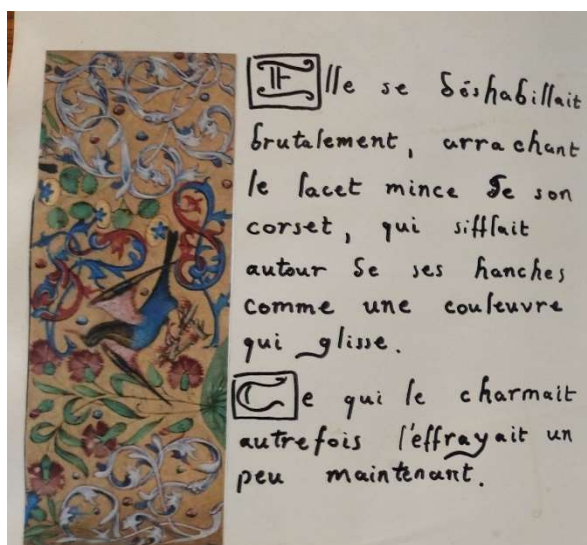 Elle se déshabillait
brutalement, arrachant
le lacet mince de son
corset, qui sifflait
autour de ses hanches
comme une couleuvre
qui glisse.
Ce qui le charmait
autrefois l'effrayait un
peu maintenant.